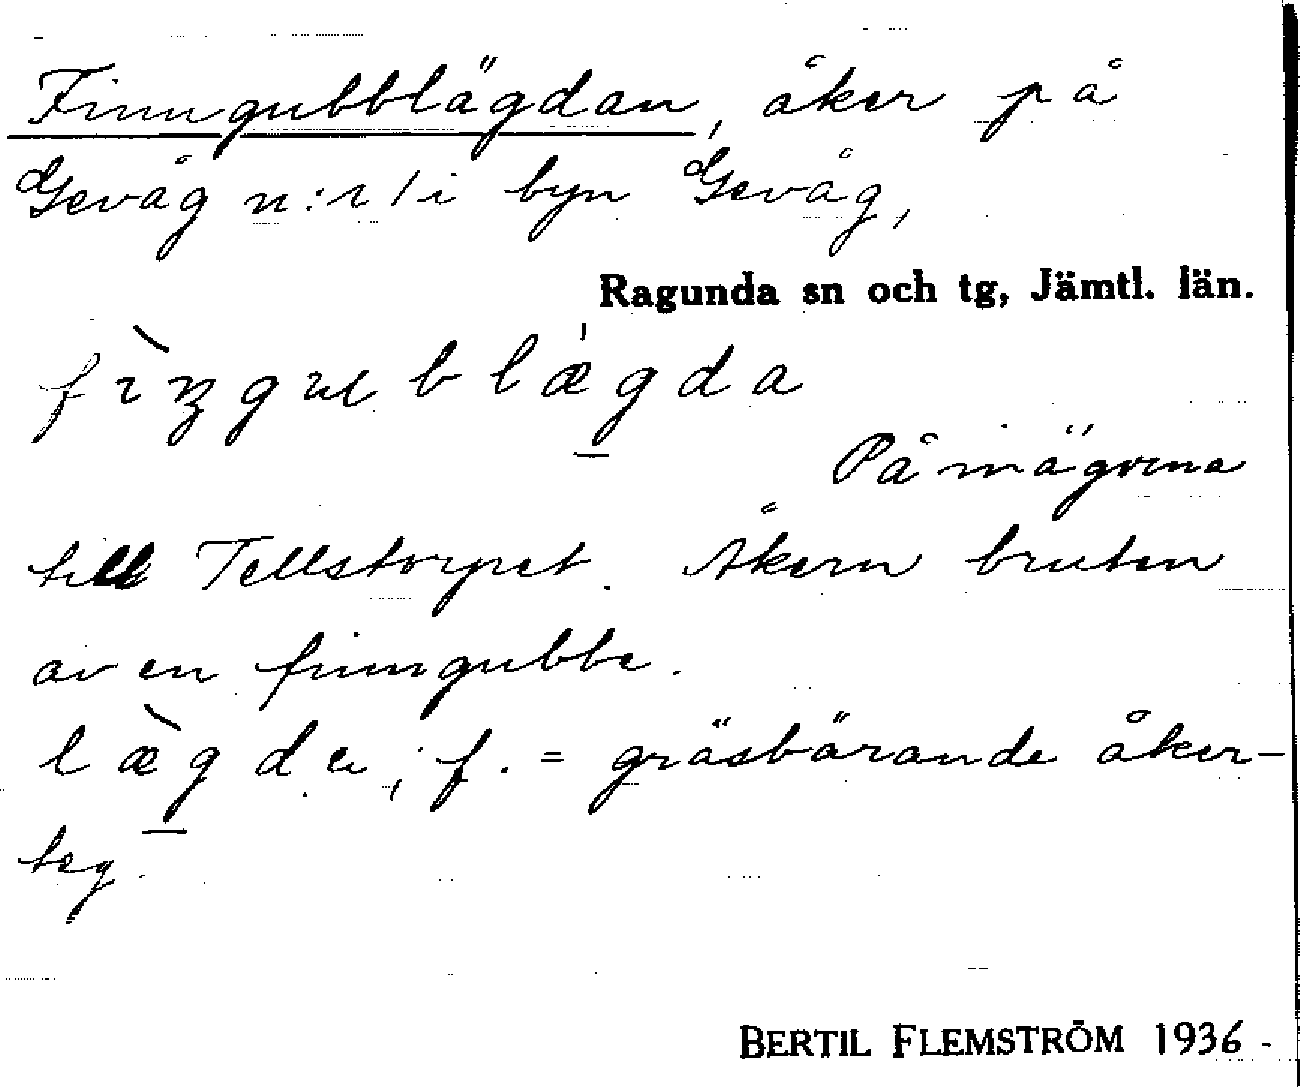 Finngubblägdan, åker på
Gevåg n:r 1 i byn Gevåg,
Ragunda sn och tg, Jämtl. län.
På in ägorna
till Tellstorpet. Åkern bruten
av en finngubbe.
læ̀gda, f. = gräsbärande åker-
teg.
BERTIL FLEMSTRÖM 1936